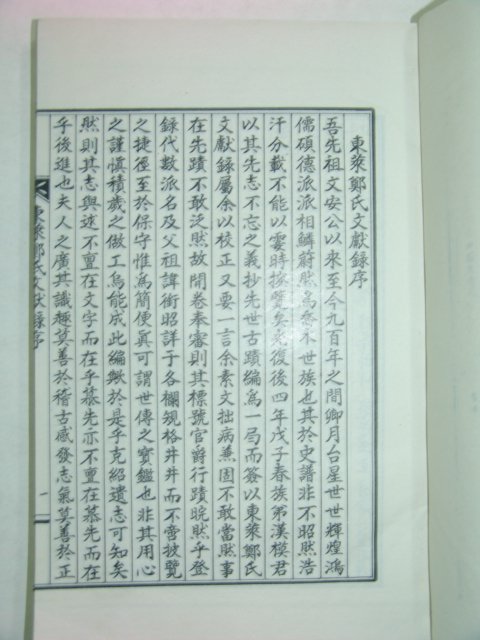 東萊鄭氏文獻錄序
吾先祖文安公以來至今九百年之間卿月台星世世輝煌鴻
儒碩德派派相鱗蔚然爲喬木世族也其於史譜非不昭然浩
汗分載不能以霎時披矣復後四年戊子春族弟漢模君
以其先志不忘之義抄先世古蹟編爲一局而簽以東萊鄭氏
文獻錄屬余以校正又要一言余素文拙病蕪固不敢當然事
在先蹟不敢泛然故開卷奉審則其標號官爵行蹟晥然乎登
録代數派名及父祖諱銜昭詳于各欄規格井井而不啻披覽
之捷徑至於保守惟爲簡便眞可謂世傳之寶鑑也非其用心
之謹愼積歲之做工烏能成此編歟於是乎克紹遺志可知矣
然則其志與述不亶在文字而在乎慕先亦不亶在慕先而在
乎後進也夫人之廣其識趣莫善於稽古感發志氣莫善於正
東萊鄭氏文獻錄序
一